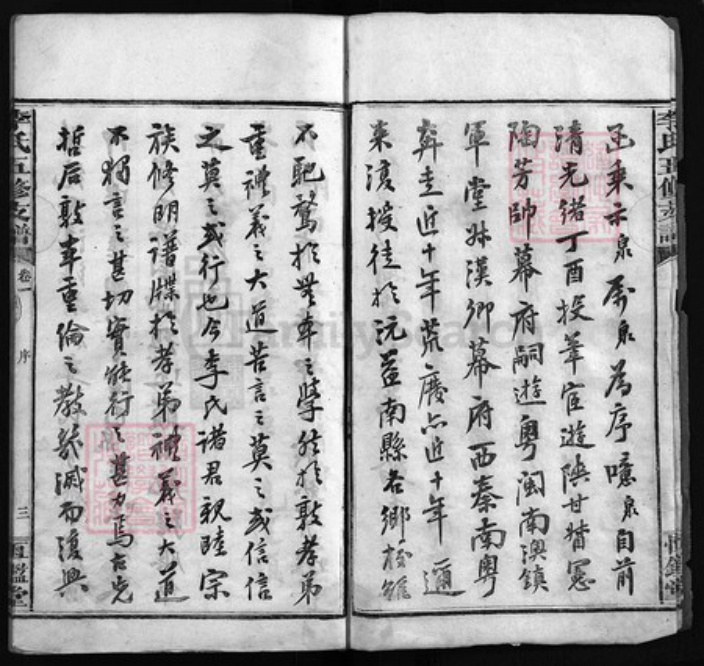 函乘示泉屬泉為序噫泉自前
清光緒丁酉投筆宦遊陝甘督憲
陶芳帥幕府嗣遊粵閩南澳鎮
軍堂妹漢卿幕府西秦南粵
奔走近十年荒廢亦近十年邇
來復授徒於沅益南縣各鄉校雖
不馳騖於無本之學然於敦孝弟
重禮義之大道苦言之莫之或信信
之莫之或行也今李氏諸君親睦宗
族修明譜牒於孝弟禮義之大道
不獨言之甚切實能行之甚力焉古先
哲后敦本重倫之教幾滅而復興
李氏五修支譜
卷一
序
三
恒鑑堂
FamilySearch